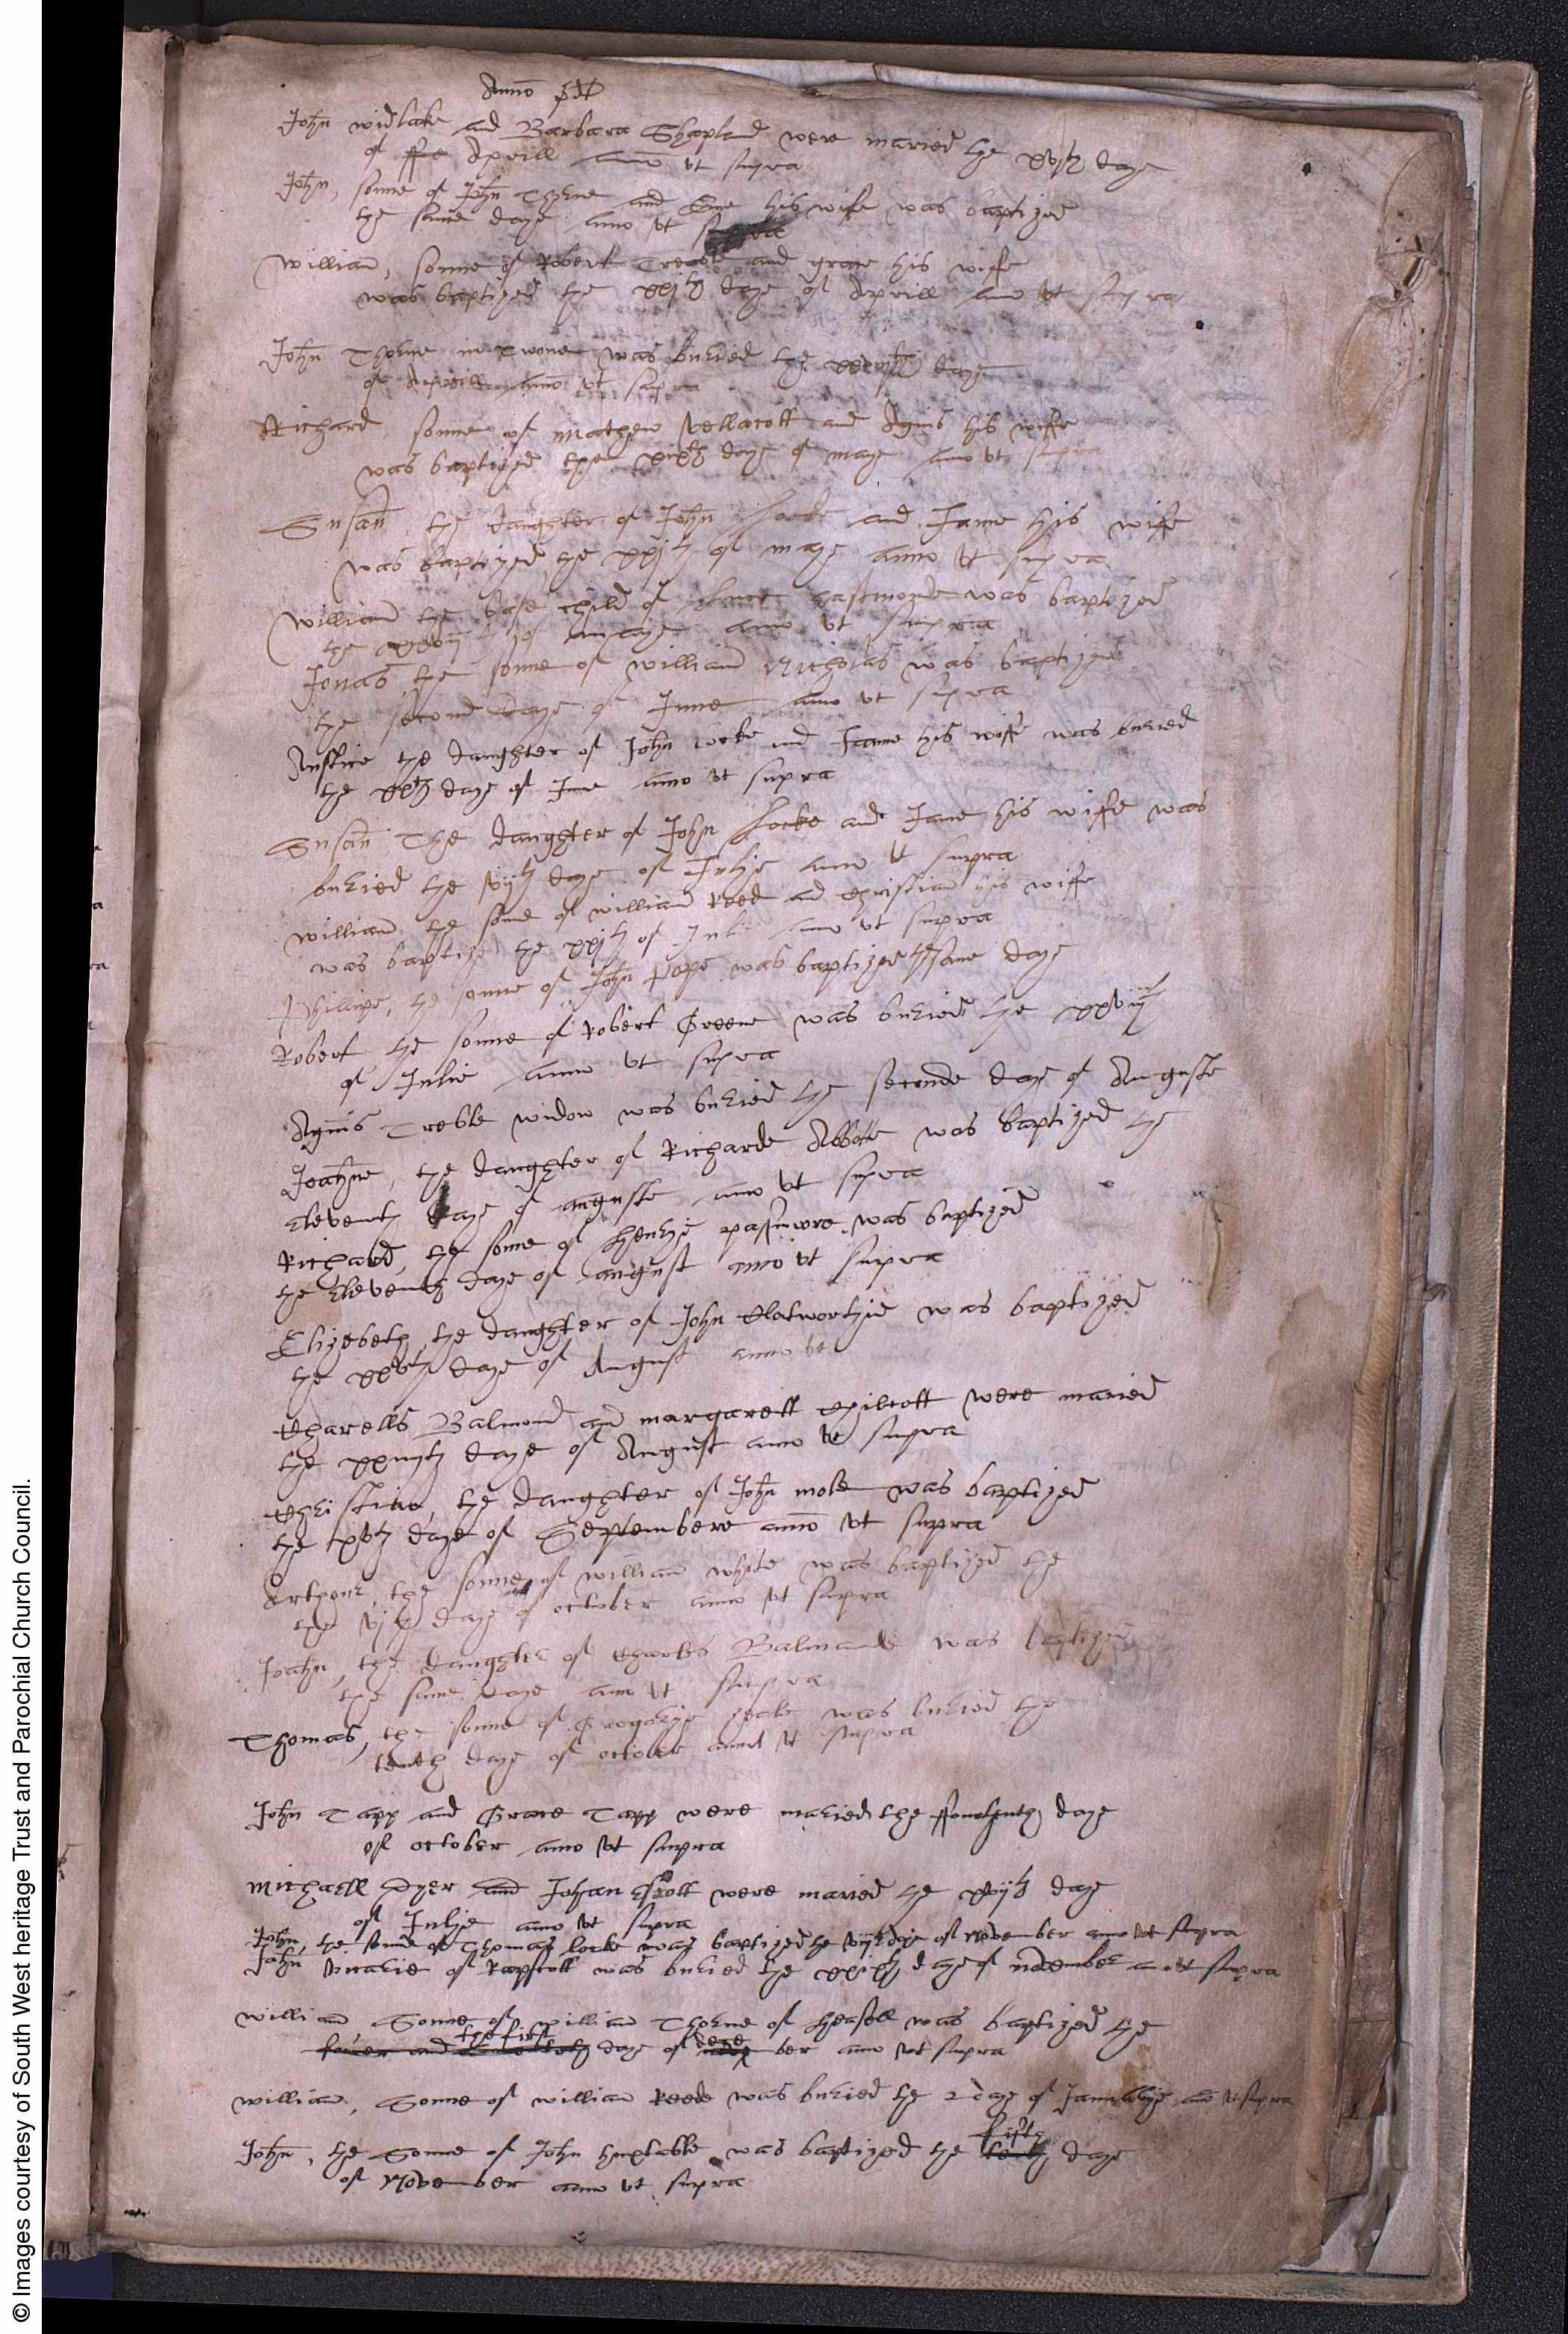 Anno
John widlake and Barbara Shapland were maried the xvjth daye
of Aprill anno ut supra
John, sonne of John Thorne and his wife was baptized
the same daye anno ut supra
William, sonne of Robert Treble and grace his wiffe
was baptized the xxjth daye of Aprill anno ut supra
John Thorne in was buried the daye
of Aprill anno ut supra
Richard sonne of Mathew Vellacott and Agnis his wiffe
was baptized the daye of maye anno ut supra
Susan the daughter of John Locke and Jane his wife
was baptized the xxjth of maye anno ut supra
William the base child of was baptized
the of maye anno ut supra
Jonas the sonne of william Nicholas was baptized
the second daye of June anno ut supra
Anstice the daughter of John Locke and Jane his wiffe was buried
the daye of June anno ut supra
Susan The daughter of John Locke and Jane his wiffe was
buried the vijth daye of Julye anno ut supra
William the sonne of william Reed and Christian his wiffe
was baptized the xxjth of Julie anno ut supra
Phillipe, the sonne of John Pope was baptized the same daye
Robert the sonne of Robert Greene was buried the
of Julie anno ut supra
Agnis Treble widow was buried the seconde daye of Auguste
Joahne, the daughter of Richarde Abbott was baptized the
Eleventh daye of auguste anno ut supra
Richard, the sonne of Henrye passmore was baptized
the Eleventh daye of august anno ut supra
Elizebeth the daughter of John Clatworthie was baptized
the xxvth daye of August anno ut
Charells Balmond and margarett Chilcott were maried
the daye of August anno ut supra
Christina the daughter of John mole was baptized
the xvth daye of Septembere anno ut supra
Arthour, the sonne of william white was baptized the
the vjth daye of october anno ut supra
Joahn, the daughter of Charles Balmande was baptized
the same daye anno ut supra
Thomas, the sonne of Gregorye was buried the
tenth daye of october anno ut supra
John Tapp and Grace Tapp were maried the daye
of october anno ut supra
Michaell Dyer and Johan Escott were maried the xvijth daye
of Julye anno ut supra
John, the sonne of Thomas Locke was baptized the vijth daye of November anno ut supra
John of Rapscott was buried the daye of november ano ut supra
William Sonne of william Thorne of Heasell was baptized the
the first
fower and daye of dece ber anno ut supra
William, Sonne of william Reede was buried the 2 daye of Januarye ano ut supra
fifth
John, the Sonne of John huxtable was baptized the tenth daye
of November anno ut supra
© Images courtesy of South West heritage Trust and Parochial Church Council.